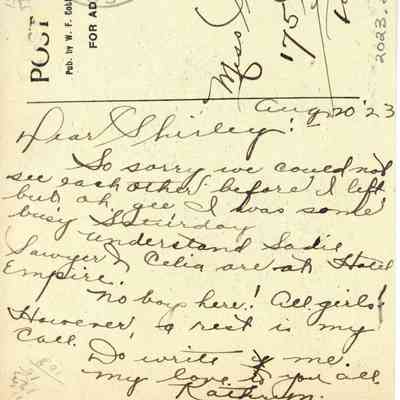 POST
Pub. by W. F.
FOR AD
Miss
175
2023.
Aug 20 '23
Dear Shirley:
So sorry we could not
see each other before I left
but oh gee I was some
busy Saturday
Understand Sadie
Sawyer & Celia are at Hotel
Empire.
No boys here! All girls!
However, a rest is my
call.
Do write to me.
My love to you all
Kathryn.